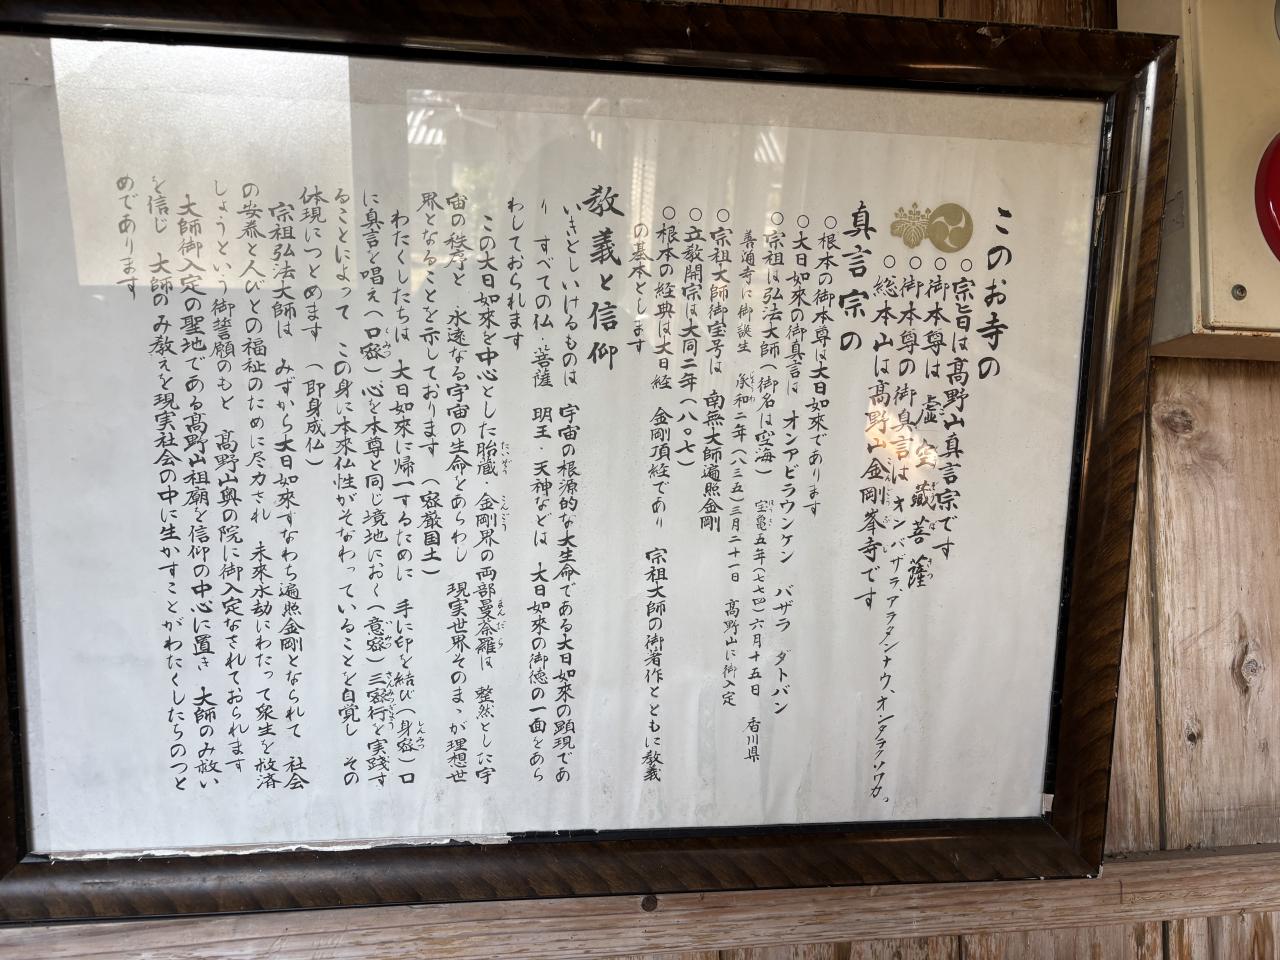 このお寺の
○宗旨は高野山真言宗です
○御本尊は 虚空蔵菩薩
○御本尊の御真言は オンバザラ、アラタンナウ、オンタラクソワカ。
○総本山は高野山金剛峯寺です
真言宗の
○根本の御本尊は大日如来であります
○大日如来の御真言は オンアビラウンケン バザラ ダトバン
○宗祖は弘法大師(御名は空海) 宝亀五年(七七四)六月十五日 香川県
善通寺に御誕生 承和二年(八三五)三月二十一日 高野山に御入定
○宗祖大師御宝号は 南無大師遍照金剛
○立教開宗は大同二年(八〇七)
○根本の経典は大日経 金剛頂経であり 宗祖大師の御著作とともに教義
の基本とします
教義と信仰
いきとしいけるものは 宇宙の根源的な大生命である大日如来の顕現であ
り すべての仏・菩薩 明王・天神などは 大日如来の御徳の一面をあら
わしておられます
この大日如来を中心とした胎蔵・金剛界の両部曼荼羅は 整然とした宇
宙の秩序と 永遠なる宇宙の生命をあらわし 現実世界そのまゝが理想世
界となることを示しております (密厳国土)
わたくしたちは 大日如来に帰一するために 手に印を結び(身密)口
に真言を唱え(口密)心を本尊と同じ境地におく(意密)三密行を実践す
ることによって この身に本来仏性がそなわっていることを自覚し その
体現につとめます (即身成仏)
宗祖弘法大師は みずから大日如来すなわち遍照金剛となられて 社会
の安泰と人びとの福祉のために尽力され 未来永劫にわたって衆生を救済
しようという御誓願のもと 高野山奥の院に御入定なされておられます
大師御入定の聖地である高野山祖廟を信仰の中心に置き 大師のみ救い
を信じ 大師のみ教えを現実社会の中に生かすことがわたくしたちのつと
めであります